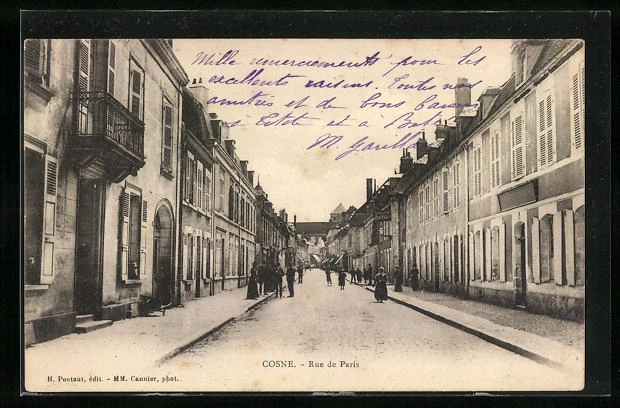 Mille remerciements pour les
excellents raisins. Toutes nos
amitiés et de bons baisers
à Titite et à Bé
M.
COSNE. - Rue de Paris
H. Pontaut, édit. - MM. Cannier, phot.